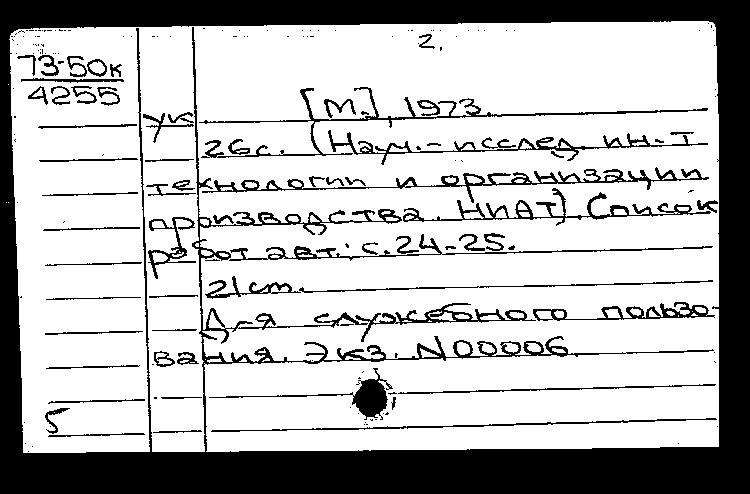 2.
73-50к
4255
ук [М.], 1973.
26с. (Науч.-исслед. ин-т
технологии и организации
производства. НИАТ). Список
работ авт.: с.24-25.
21см.
Для служебного пользо-
вания. Экз. N00006.
5